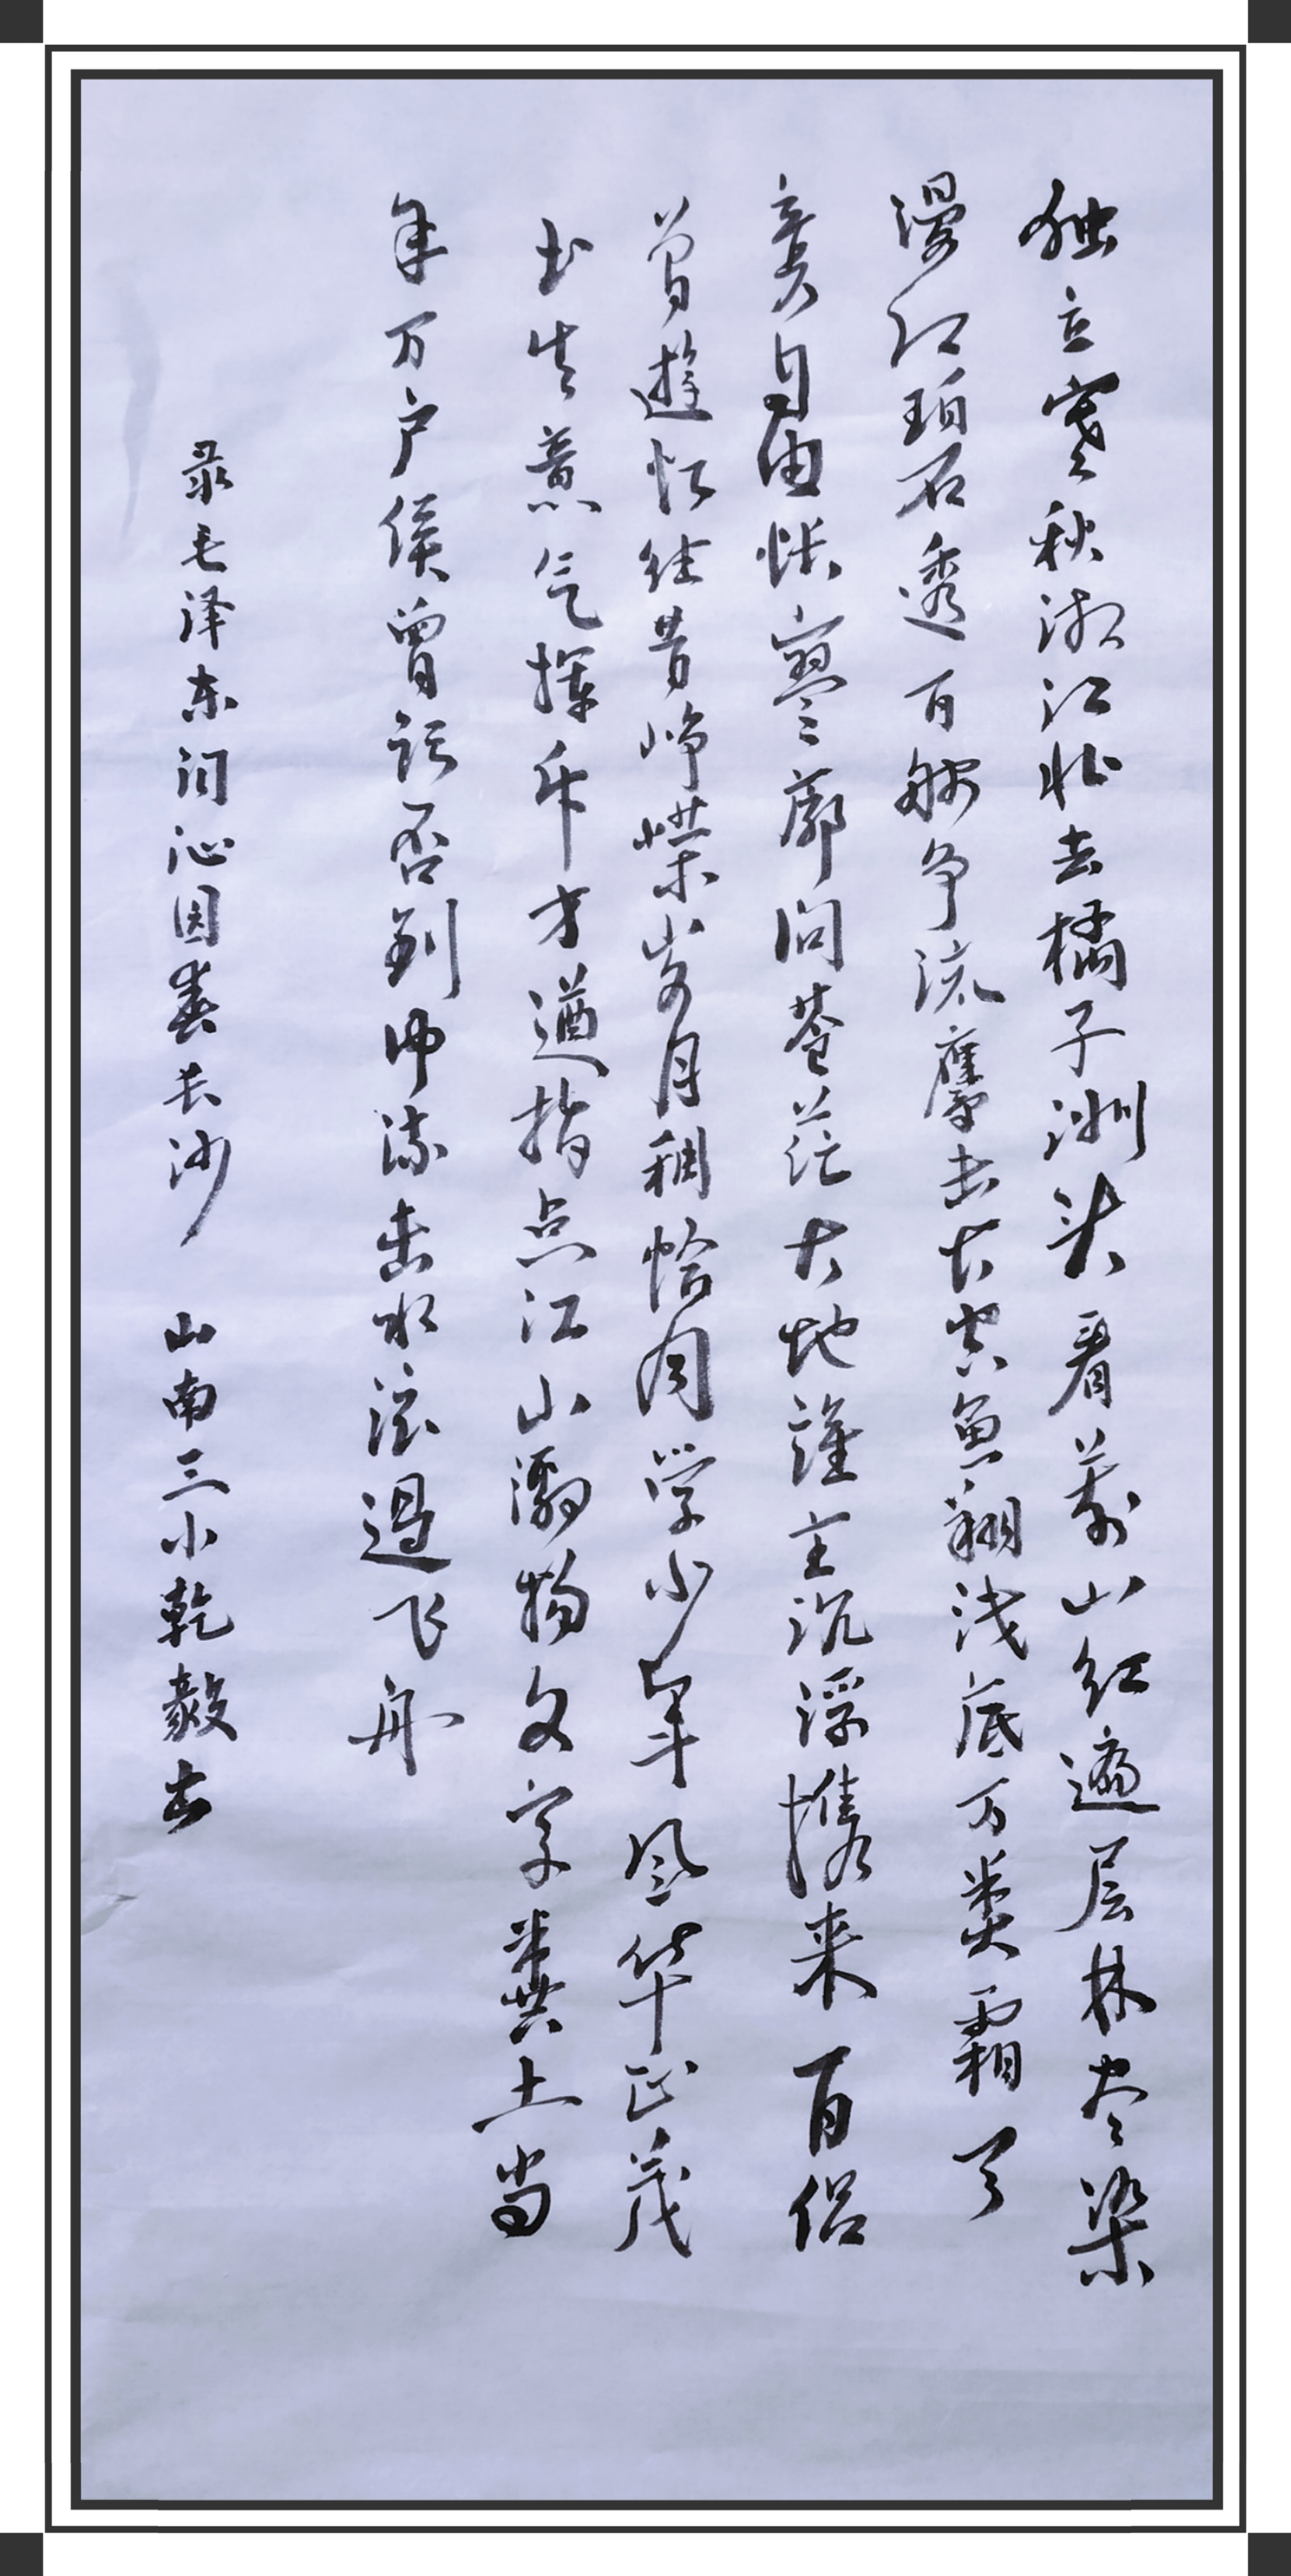 独立寒秋湘江北去橘子洲头看萬山红遍层林尽染
漫江碧透百舸争流鹰击长空鱼翔浅底万类霜天
竞自由怅寥廓问苍茫大地誰主沉浮携来百侣
曾遊忆往昔峥嵘岁月稠恰同学少年风华正茂
书生意气挥斥方遒指点江山激扬文字粪土当
年万户侯曾记否到中流击水浪遏飞舟
录毛泽东词沁园春长沙 山南三小乾毅书